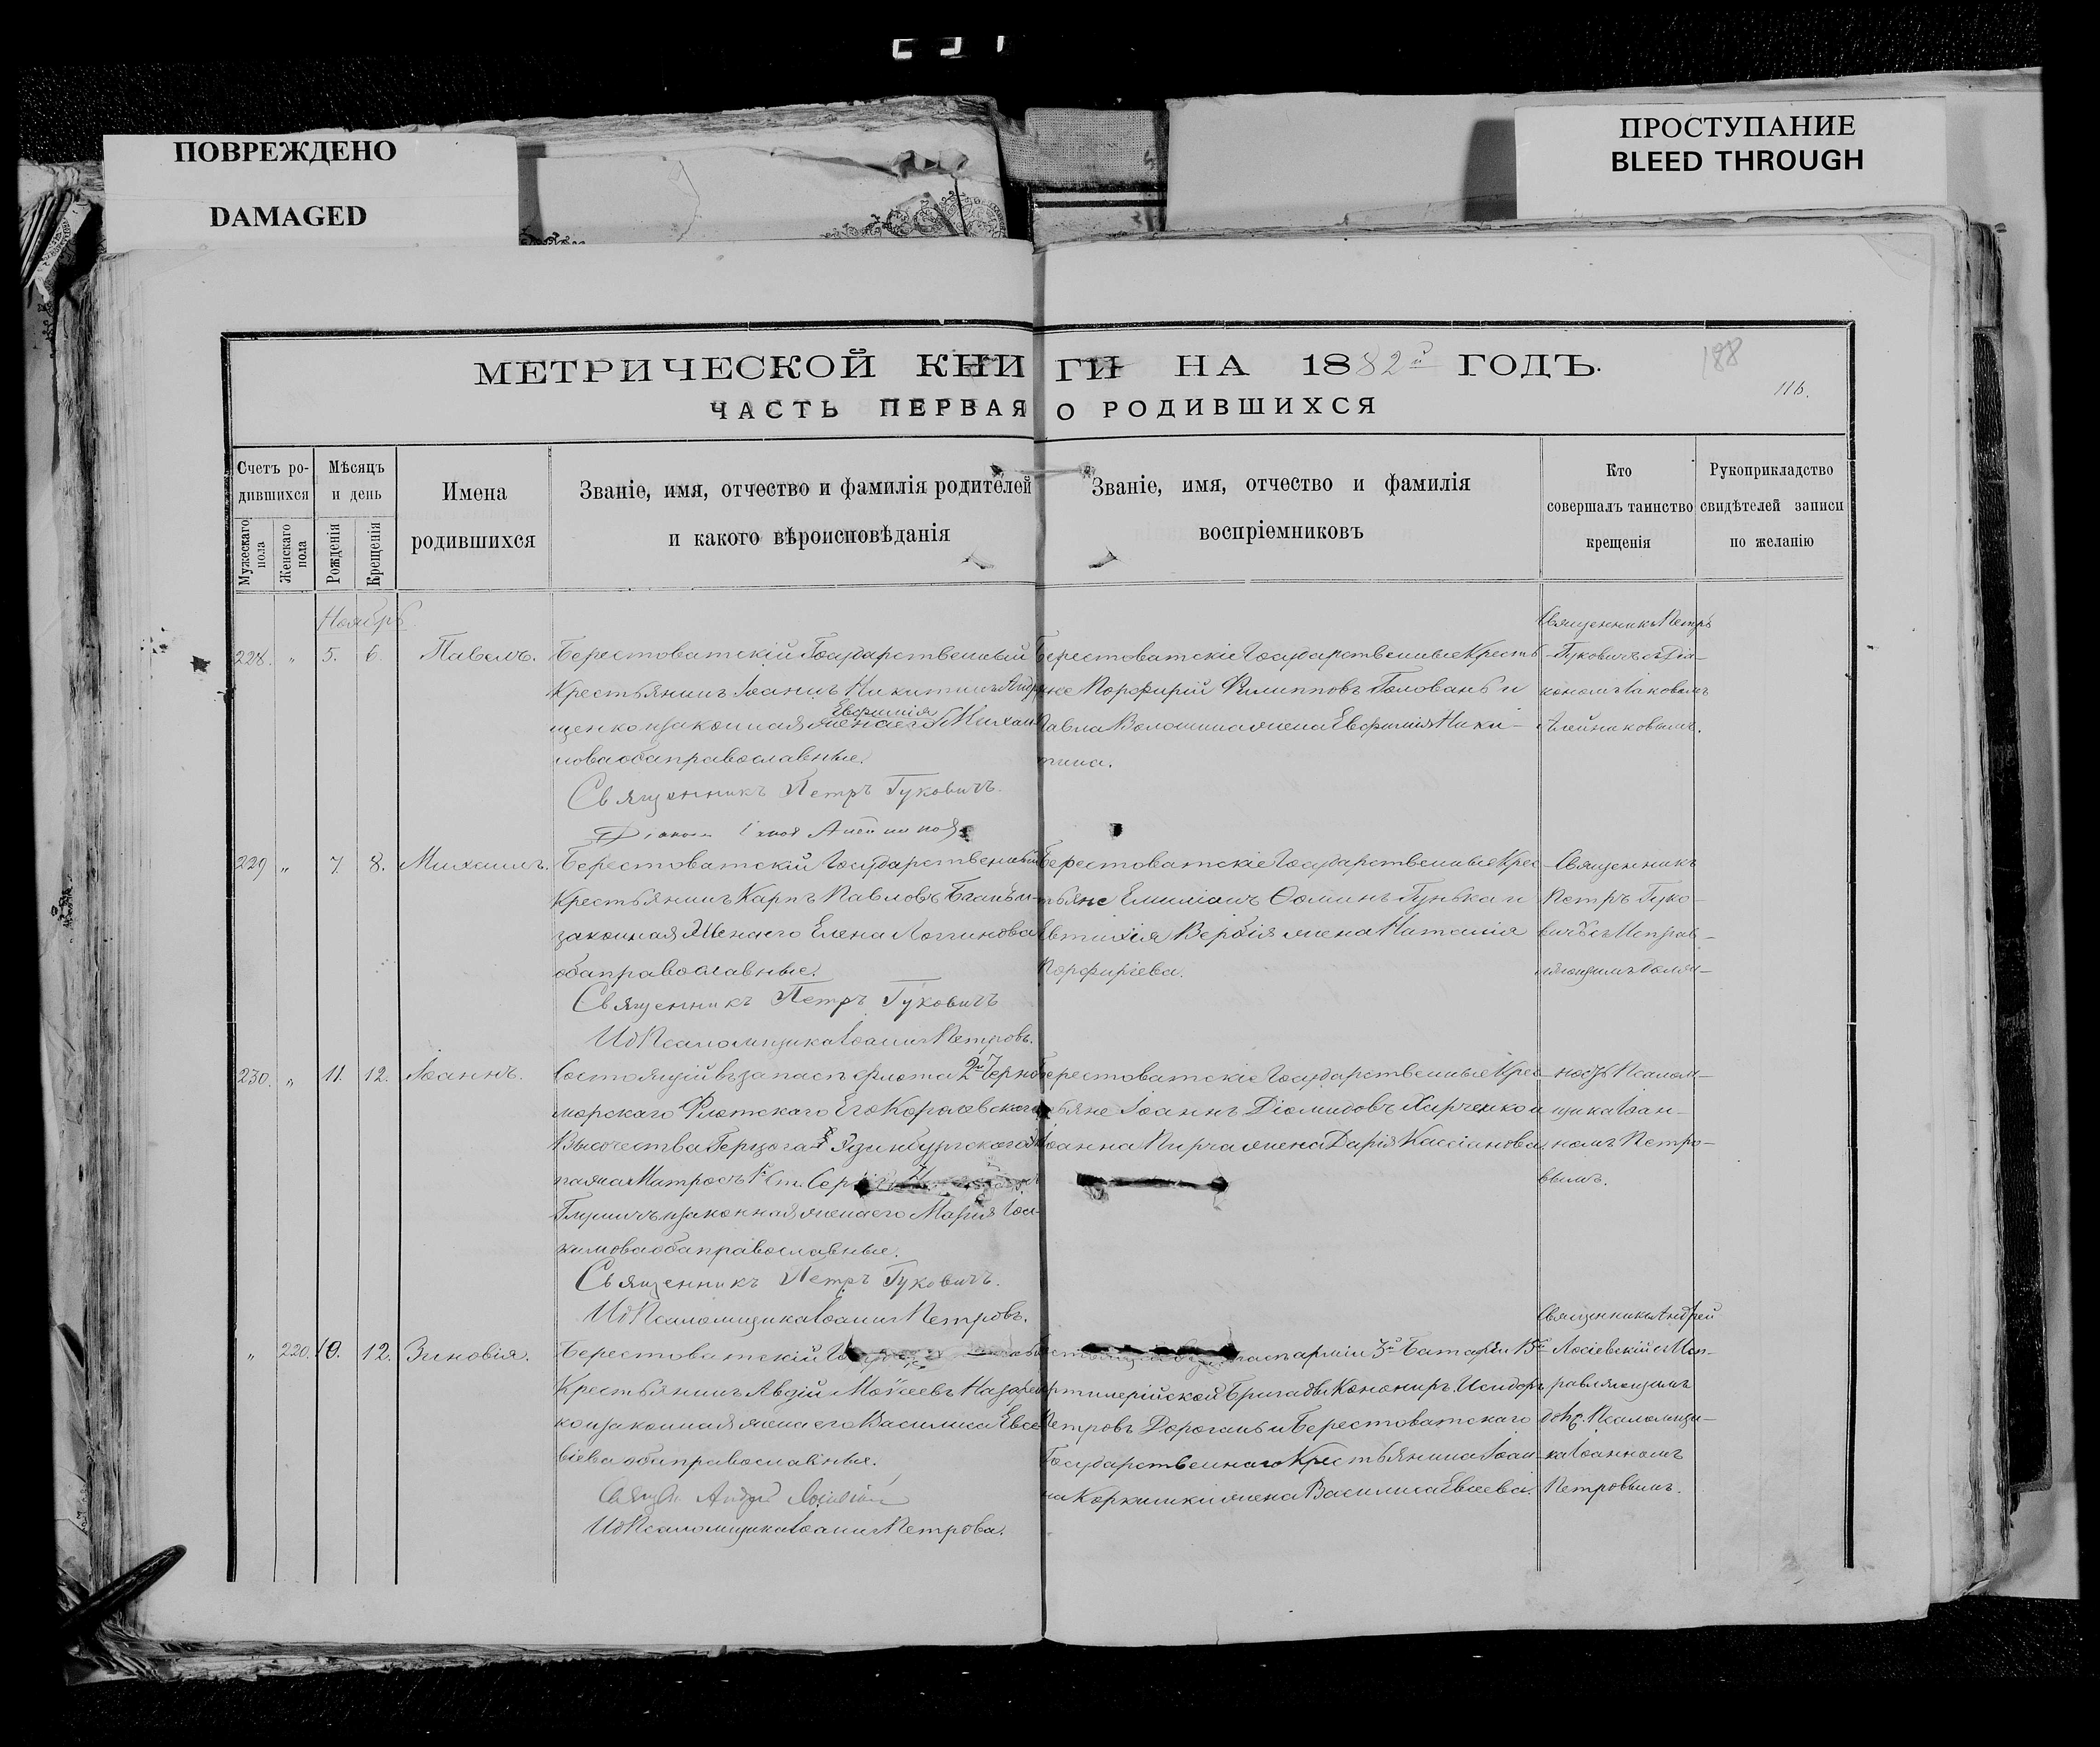 ПОВРЕЖДЕНО
DAMAGED
ПРОСТУПАНИЕ
BLEED THROUGH
МЕТРИЧЕСКОЙ КНИГИ НА 1882й ГОДЪ.
188
116.
ЧАСТЬ ПЕРВАЯ О РОДИВШИХСЯ
Счетъ родившихся
Мужескаго пола
Женскаго пола
Мѣсяцъ и день
Рожденія
Крещенія
Имена родившихся
Званіе, имя, отчество и фамилія родителей
и какого вѣроисповѣданія
Званіе, имя, отчество и фамилія
воспріемниковъ
Кто
совершалъ таинство
крещенія
Рукоприкладство
свидѣтелей записи
по желанію
Ноябрь
228. " 5. 6. Павелъ.
Берестоватскій Государственный
Крестьянинъ Іоаннъ Никитинъ
законная жена его Евфимія Михаи
лова оба православные.
Священникъ Петръ Гуковичъ.
Берестоватскіе Государственные Кресть
яне Порфирій Филипповъ Головань и
Павла Волошина жена Евфимія Ники-
тина.
Священникъ Петръ
Гуковичъ съ Діа-
кономъ Іаковомъ
Алейниковымъ.
229 " 7. 8. Михаилъ.
Берестоватскій Государственный
Крестьянинъ Карпъ Павловъ
законная жена его Елена Логгинова
оба православные.
Священникъ Петръ Гуковичъ
Ид Псаломщика Іоаннъ Петровъ.
Берестоватскіе Государственные Крес
тьяне Емиліанъ Ѳоминъ Гунька и
Евтихія Вербія жена Наталія
Порфиріева.
Священникъ
Петръ Гуко-
вичъ съ Исправ-
ляющимъ долж-
230. " 11. 12. Іоаннъ.
Состоящій въ запасѣ флота 2го Черно
морскаго Флотскаго Его Королевскаго
Высочества Герцога Эдинбургскаго
пажа Матросъ 1й Ст.
законная жена его Марія Іоа-
кимова оба православные.
Священникъ Петръ Гуковичъ.
Ид Псаломщика Іоаннъ Петровъ.
Берестоватскіе Государственные Крес
тьяне Іоаннъ Діомидовъ Харченко и
Іоанна Пирча жена Дарія Кассіанова.
ность Псалом-
щика Іоан-
номъ Петро-
вымъ.
" 220. 10. 12. Зиновія.
Берестоватскій
Крестьянинъ Авдій Моѵсеевъ Назарен
ко законная жена его Василиса Евсе
віева оба православные.
Ид Псаломщика Іоаннъ Петровъ.
запасѣ арміи 3й Батареи 15й
Артилерійской Бригады Канониръ Исидоръ
Петровъ Дорогань и Берестоватскаго
Государственнаго Крестьянина Іоан
на Коркишки жена Василиса Евсеева.
Священникъ Андрей
Лосіевскій съ Исп-
равляющимъ
долж. Псаломщи-
ка Іоанномъ
Петровымъ.